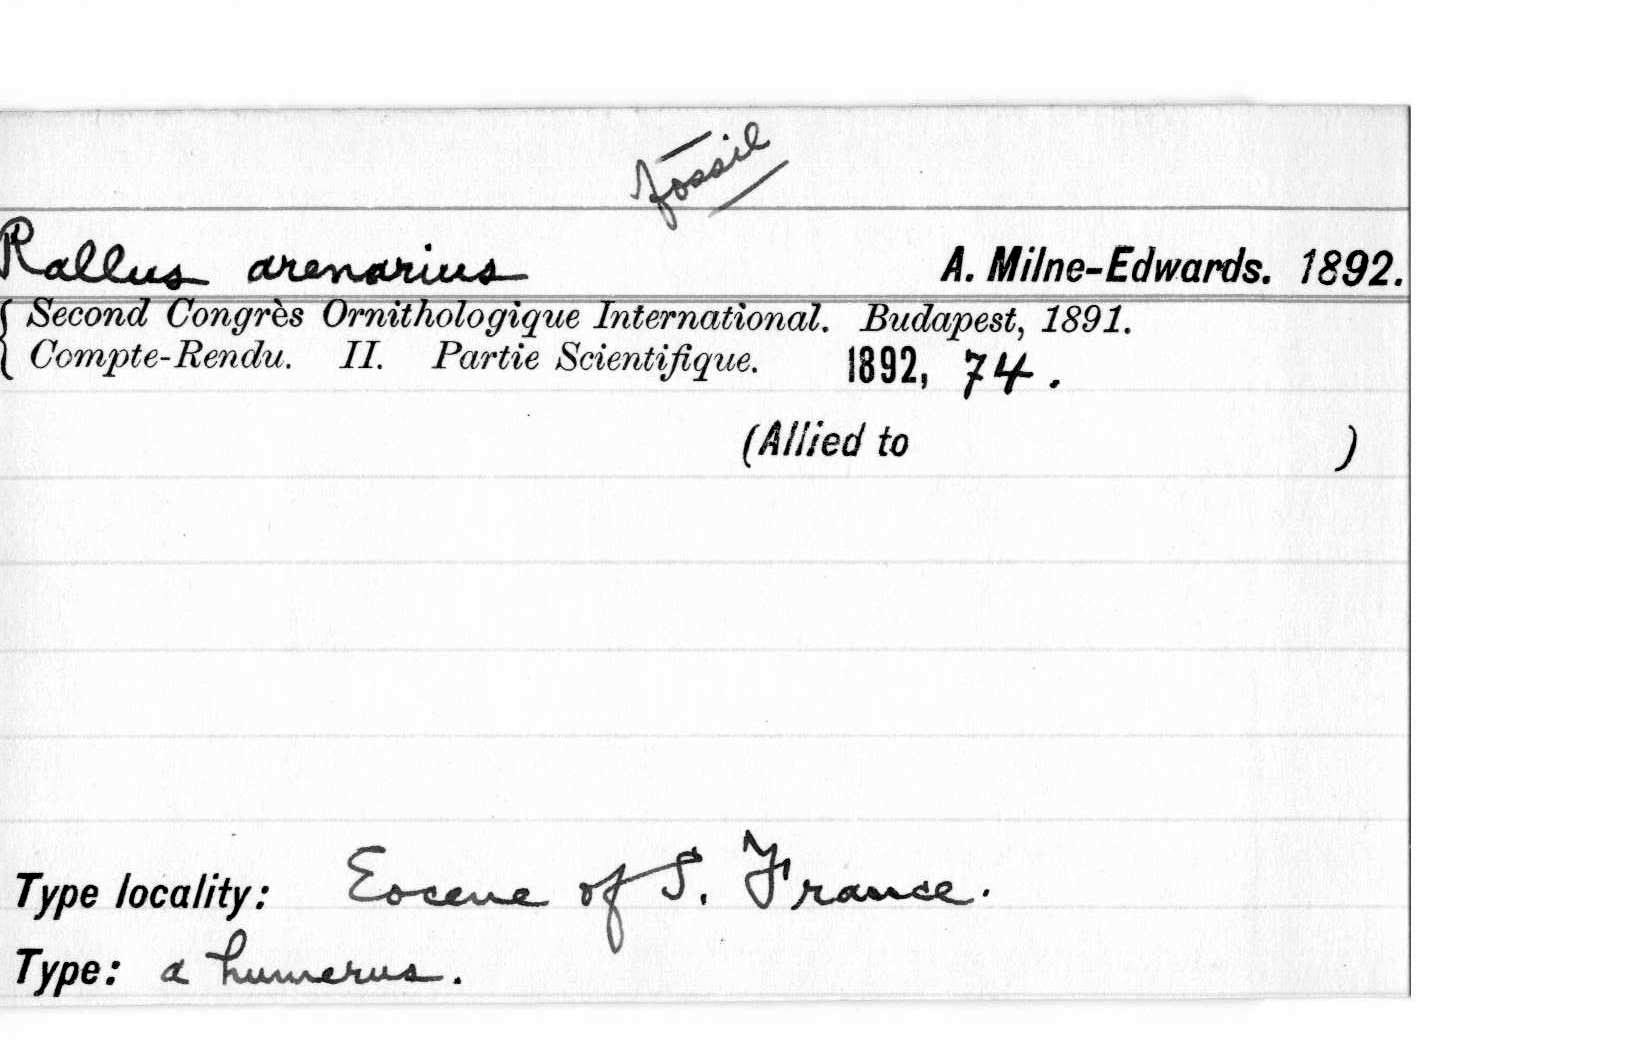 Fossil
Rallus arenarius A. Milne-Edwards. 1892.
{ Second Congrès Ornithologique International. Budapest, 1891.
Compte-Rendu. II. Partie Scientifique. 1892, 74.
(Allied to )
Type locality: Eocene of S. France.
Type: a humerus.